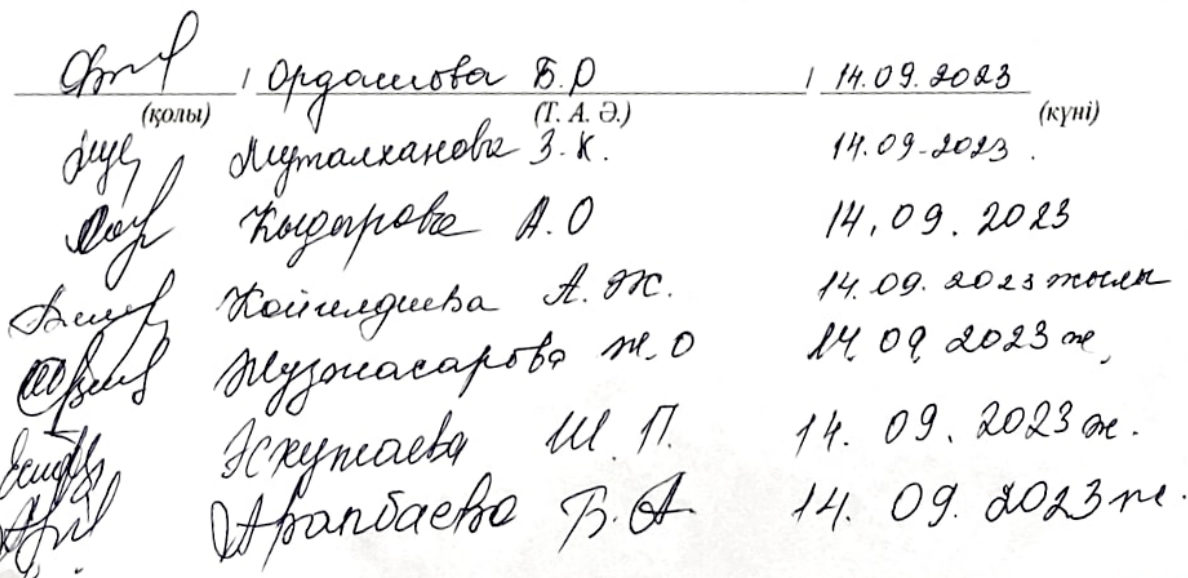 / Ордашова Б.О / 14.09.2023
(қолы) (Т. А. Ә.) (күні)
Муталханова З.К. 14.09.2023.
Кыдырова А.О 14.09.2023
Койгелдиева А.Ж. 14.09.2023 жылы
Жузжасарова Ж.О 14.09.2023 ж.
Ш.П. 14.09.2023 ж.
Арапбаева Б.А. 14.09.2023 ж.